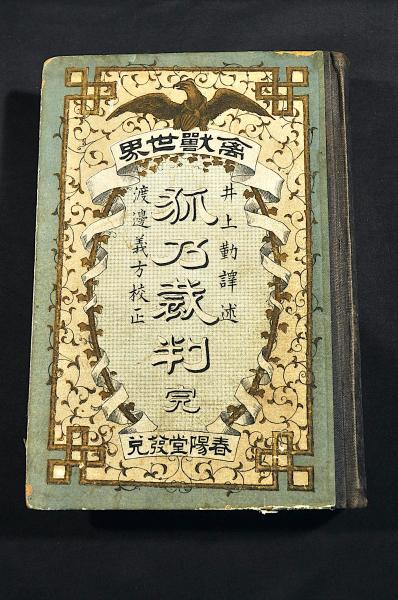 禽獸世界
井上勤譯述
狐乃裁判 完
渡邊義方校正
春陽堂發兌